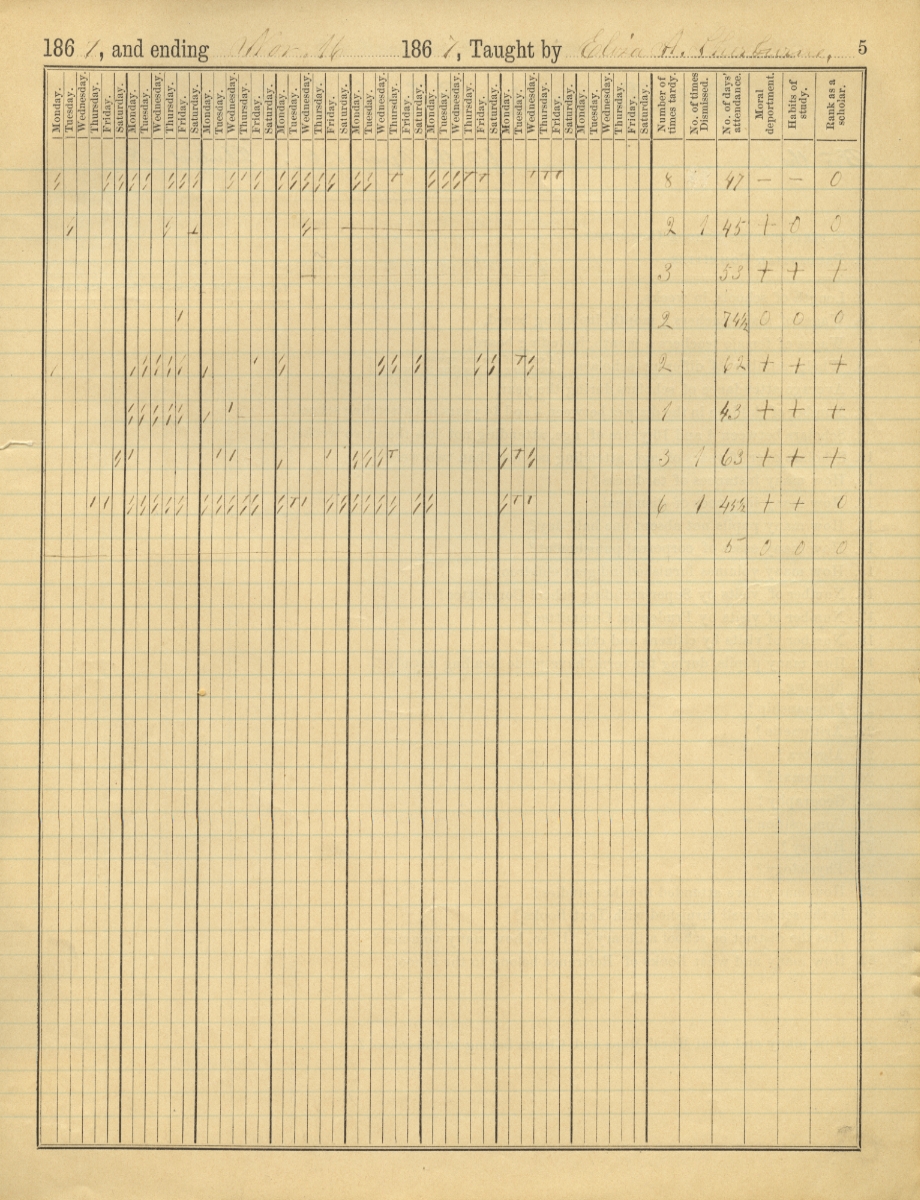 1867, and ending Nov. 1867, Taught by Eliza A. 5
Monday. Tuesday. Wednesday. Thursday. Friday. Saturday. Monday. Tuesday. Wednesday. Thursday. Friday. Saturday. Monday. Tuesday. Wednesday. Thursday. Friday. Saturday. Monday. Tuesday. Wednesday. Thursday. Friday. Saturday. Monday. Tuesday. Wednesday. Thursday. Friday. Saturday. Monday. Tuesday. Wednesday. Thursday. Friday. Saturday. Monday. Tuesday. Wednesday. Thursday. Friday. Saturday. Monday. Tuesday. Wednesday. Thursday. Friday. Saturday. Number of times tardy. No. of times Dismissed. No. of days' attendance. Moral deportment. Habits of study. Rank as a scholar.
8 47 — — 0
2 1 45 + 0 0
3 53 + + +
2 74½ 0 0 0
2 62 + + +
1 43 + + +
3 1 63 + + +
6 1 45½ + + 0
5 0 0 0